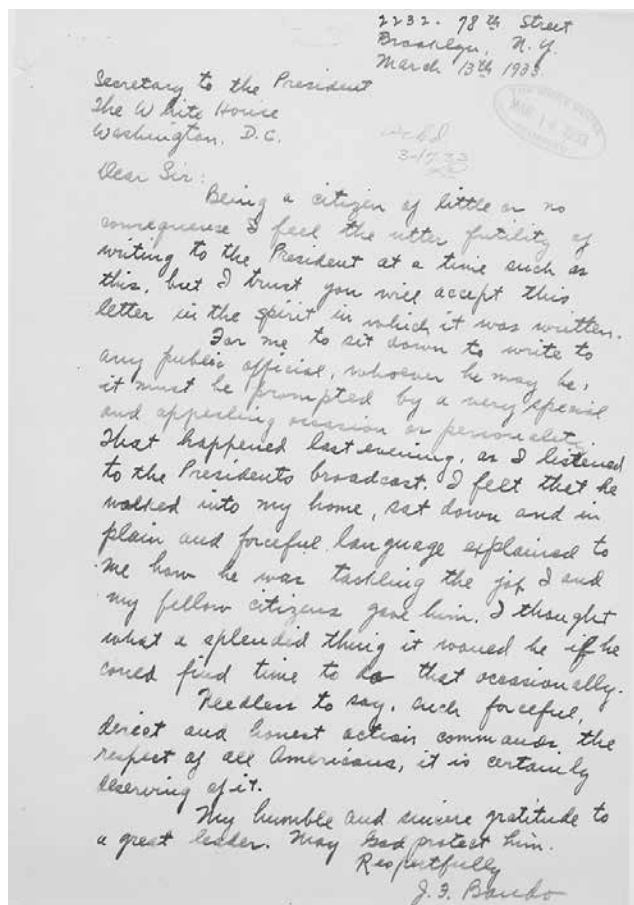 2232 - 78th Street
Brooklyn, N.Y.
March 13th 1933.
Secretary to the President
The White House
Washington, D.C.
THE WHITE HOUSE
MAR 14 1933
RECEIVED
3-17-33
Dear Sir:
Being a citizen of little or no
consequense I feel the utter futility of
writing to the President at a time such as
this, but I trust you will accept this
letter in the spirit in which it was written.
For me to sit down to write to
any public official, whoever he may be,
it must be prompted by a very special
and appealing occasion or personality.
That happened last evening, as I listened
to the Presidents broadcast. I felt that he
walked into my home, sat down and in
plain and forceful language explained to
me how he was tackling the job I and
my fellow citizens gave him. I thought
what a splendid thing it would be if he
could find time to do that occasionally.
Needless to say, such forceful,
direct and honest action commands the
respect of all Americans, it is certainly
deserving of it.
My humble and sincere gratitude to
a great leader. May God protect him.
Respectfully
J. F. Bando